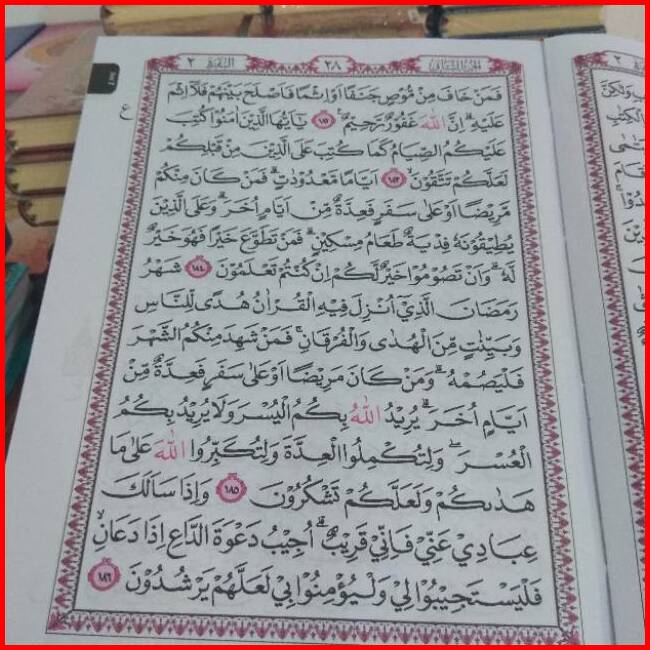 البقرة ٢
٢٨
الجزء الثاني
فَمَنْ خَافَ مِنْ مُّوْصٍ جَنَفًا اَوْ اِثْمًا فَاَصْلَحَ بَيْنَهُمْ فَلَآ اِثْمَ
عَلَيْهِ ۗ اِنَّ اللّٰهَ غَفُوْرٌ رَّحِيْمٌ ࣖ ١٨٢ يٰٓاَيُّهَا الَّذِيْنَ اٰمَنُوْا كُتِبَ
عَلَيْكُمُ الصِّيَامُ كَمَا كُتِبَ عَلَى الَّذِيْنَ مِنْ قَبْلِكُمْ
لَعَلَّكُمْ تَتَّقُوْنَ ۙ ١٨٣ اَيَّامًا مَّعْدُوْدٰتٍ ۗ فَمَنْ كَانَ مِنْكُمْ
مَّرِيْضًا اَوْ عَلٰى سَفَرٍ فَعِدَّةٌ مِّنْ اَيَّامٍ اُخَرَ ۗ وَعَلَى الَّذِيْنَ
يُطِيْقُوْنَهٗ فِدْيَةٌ طَعَامُ مِسْكِيْنٍ ۗ فَمَنْ تَطَوَّعَ خَيْرًا فَهُوَ خَيْرٌ
لَّهٗ ۗ وَاَنْ تَصُوْمُوْا خَيْرٌ لَّكُمْ اِنْ كُنْتُمْ تَعْلَمُوْنَ ١٨٤ شَهْرُ
رَمَضَانَ الَّذِيْٓ اُنْزِلَ فِيْهِ الْقُرْاٰنُ هُدًى لِّلنَّاسِ
وَبَيِّنٰتٍ مِّنَ الْهُدٰى وَالْفُرْقَانِ ۚ فَمَنْ شَهِدَ مِنْكُمُ الشَّهْرَ
فَلْيَصُمْهُ ۗ وَمَنْ كَانَ مَرِيْضًا اَوْ عَلٰى سَفَرٍ فَعِدَّةٌ مِّنْ
اَيَّامٍ اُخَرَ ۗ يُرِيْدُ اللّٰهُ بِكُمُ الْيُسْرَ وَلَا يُرِيْدُ بِكُمُ
الْعُسْرَ ۖ وَلِتُكْمِلُوا الْعِدَّةَ وَلِتُكَبِّرُوا اللّٰهَ عَلٰى مَا
هَدٰىكُمْ وَلَعَلَّكُمْ تَشْكُرُوْنَ ١٨٥ وَاِذَا سَاَلَكَ
عِبَادِيْ عَنِّيْ فَاِنِّيْ قَرِيْبٌ ۗ اُجِيْبُ دَعْوَةَ الدَّاعِ اِذَا دَعَانِ ۙ
فَلْيَسْتَجِيْبُوْا لِيْ وَلْيُؤْمِنُوْا بِيْ لَعَلَّهُمْ يَرْشُدُوْنَ ١٨٦
ع